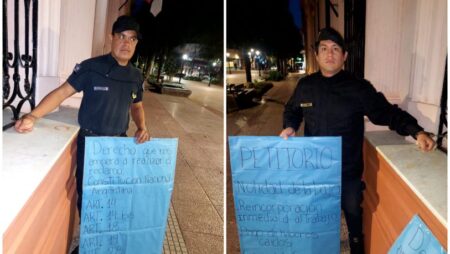 Derecho que nos
ampara a realizar el
reclamo
Constitucion Nacional
Argentina
ART. 14
ART. 14 bis
ART. 18
ART. 19
PETITORIO
Nulidad de la
Reincorporación
inmediata al trabajo
Pago de haberes
caídos